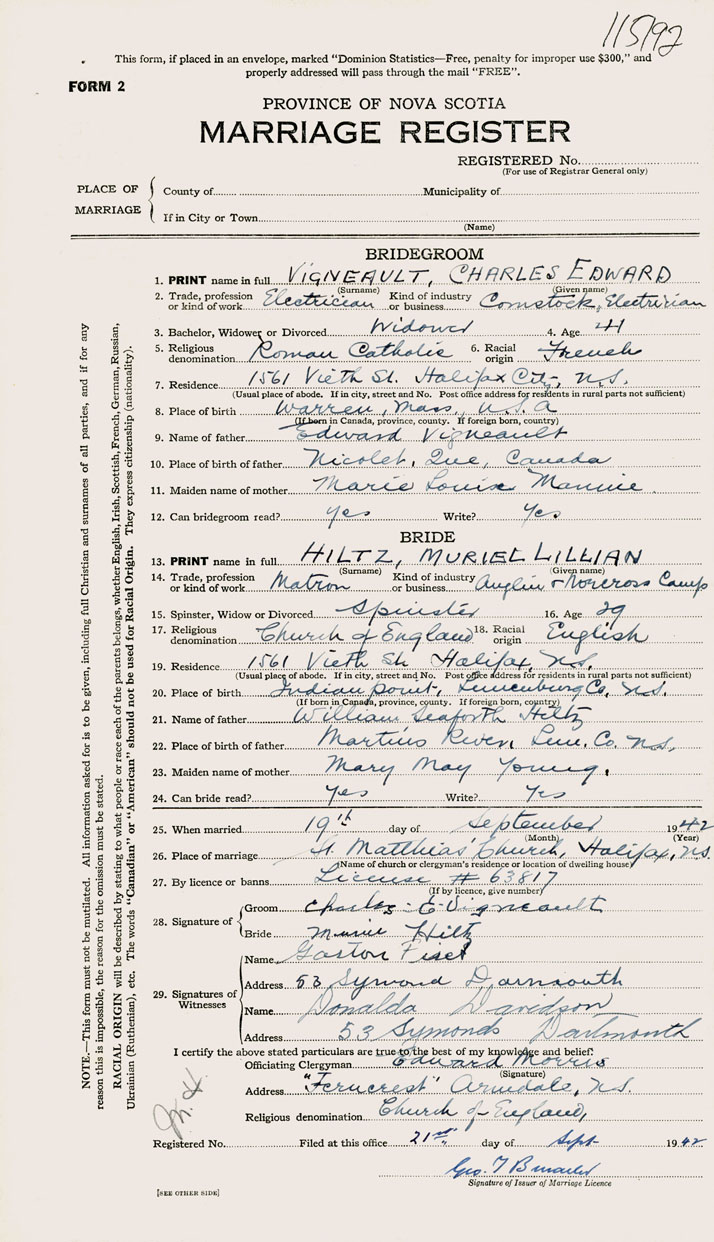 115192
This form, if placed in an envelope, marked "Dominion Statistics—Free, penalty for improper use $300," and
properly addressed will pass through the mail "FREE".
FORM 2
PROVINCE OF NOVA SCOTIA
MARRIAGE REGISTER
REGISTERED No.
(For use of Registrar General only)
PLACE OF MARRIAGE
County of Municipality of
If in City or Town
(Name)
BRIDEGROOM
1. PRINT name in full VIGNEAULT, CHARLES EDWARD
(Surname) (Given name)
2. Trade, profession or kind of work Electrician Kind of industry or business Comstock, Electrician
3. Bachelor, Widower or Divorced Widower 4. Age 41
5. Religious denomination Roman Catholic 6. Racial origin French
7. Residence 1561 Vieth St. Halifax City, N.S.
(Usual place of abode. If in city, street and No. Post office address for residents in rural parts not sufficient)
8. Place of birth Warren, Mass, U.S.A
(If born in Canada, province, county. If foreign born, country)
9. Name of father Edward Vigneault
10. Place of birth of father Nicolet, Que, Canada
11. Maiden name of mother Marie Louise
12. Can bridegroom read? yes Write? Yes
BRIDE
13. PRINT name in full HILTZ, MURIEL LILLIAN
(Surname) (Given name)
14. Trade, profession or kind of work Matron Kind of industry or business Anglin & Norcross Camp
15. Spinster, Widow or Divorced Spinster 16. Age 29
17. Religious denomination Church of England 18. Racial origin English
19. Residence 1561 Vieth St. Halifax, N.S.
(Usual place of abode. If in city, street and No. Post office address for residents in rural parts not sufficient)
20. Place of birth Indian point, Lunenburg Co. N.S.
(If born in Canada, province, county. If foreign born, country)
21. Name of father William Seaforth Hiltz
22. Place of birth of father Martins River, Lun. Co. N.S.
23. Maiden name of mother Mary May Young.
24. Can bride read? Yes Write? Yes
25. When married 19th day of September 1942
(Month) (Year)
26. Place of marriage St. Matthias' Church, Halifax, N.S.
(Name of church or clergyman's residence or location of dwelling house)
27. By licence or banns License # 63817
(If by licence, give number)
28. Signature of
Groom Charles E Vigneault
Bride Hiltz
29. Signatures of Witnesses
Name Gaston Fiset
Address 53 Symond Darmouth
Name Donalda Davidson
Address 53 Symonds Dartmouth
I certify the above stated particulars are true to the best of my knowledge and belief:
Officiating Clergyman Edward Morris
(Signature)
Address "Ferncrest" Armdale, N.S.
Religious denomination Church of England,
Registered No. Filed at this office 21st, day of Sept 1942
Geo. T
Signature of Issuer of Marriage Licence
[SEE OTHER SIDE]
NOTE.—This form must not be mutilated. All information asked for is to be given, including full Christian and surnames of all parties, and if for any
reason this is impossible, the reason for the omission must be stated.
RACIAL ORIGIN will be described by stating to what people or race each of the parents belongs, whether English, Irish, Scottish, French, German, Russian,
Ukrainian (Ruthenian), etc. The words "Canadian" or "American" should not be used for Racial Origin. They express citizenship (nationality).